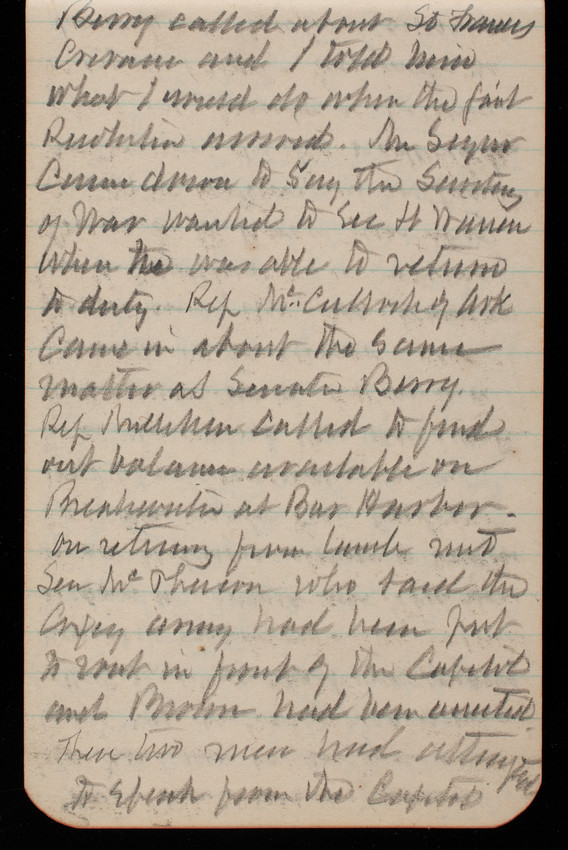 Berry called about St Francis
Crevasse and I told him
what I would do when the joint
Resolution arrived. Mr Segur
Came down to say the Secretary
of War wanted to see Lt Warren
when he was able to return
to duty. Rep McCulloch of Ark
Came in about the same
matter as Senator Berry.
Rep Milliken called to find
out balance available on
Breakwater at Bar Harbor.
on returning from lunch met
Sen McPherson who said the
Coxey army had been put
to rout in front of the Capitol
and Browne had been arrested
These two men had attempted
to speak from the Capitol